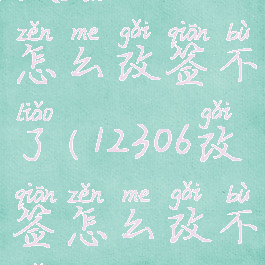 zěn me gǎi qiān bù
怎么改签不
liǎo gǎi
了(12306改
qiān zěn me gǎi bù
签怎么改不